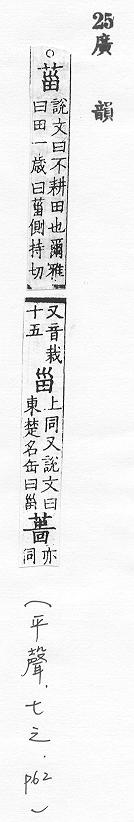 25 廣韻
○菑 說文曰不耕田也爾雅
曰田一歲曰菑側持切
又音栽
十五
甾 上同又說文曰
東楚名缶曰甾
葘 亦
同
(平聲.七之.p62)